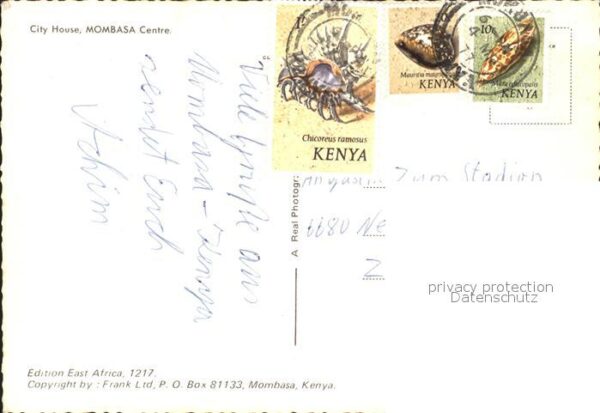 City House, MOMBASA Centre.
Viele Grüße aus
Mombasa - Kenya
sendet Euch
Achim
1/-
Chicoreus ramosus
KENYA
Mauritia
KENYA
10c
KENYA
A Real Photogr
Zum Stadion
6680 Ne
privacy protection
Datenschutz
Edition East Africa, 1217.
Copyright by : Frank Ltd, P. O. Box 81133, Mombasa, Kenya.